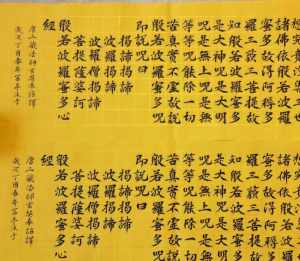 諸佛依般若波羅
蜜多故得阿耨多
羅三藐三菩提故
知般若波羅蜜多
是大神咒是大明
咒是無上咒是無
等等咒能除一切
苦真實不虛故說
般若波羅蜜多咒
即說咒曰
揭諦揭諦
波羅揭諦
波羅僧揭諦
菩提薩婆訶
般若波羅蜜多心
經
唐三藏法師玄奘奉詔譯
歲次丁酉春
諸佛依般若波羅
蜜多故得阿耨多
羅三藐三菩提故
知般若波羅蜜多
是大神咒是大明
咒是無上咒是無
等等咒能除一切
苦真實不虛故說
般若波羅蜜多咒
即說咒曰
揭諦揭諦
波羅揭諦
波羅僧揭諦
菩提薩婆訶
般若波羅蜜多心
經
唐三藏法師玄奘奉詔譯
歲次丁酉春